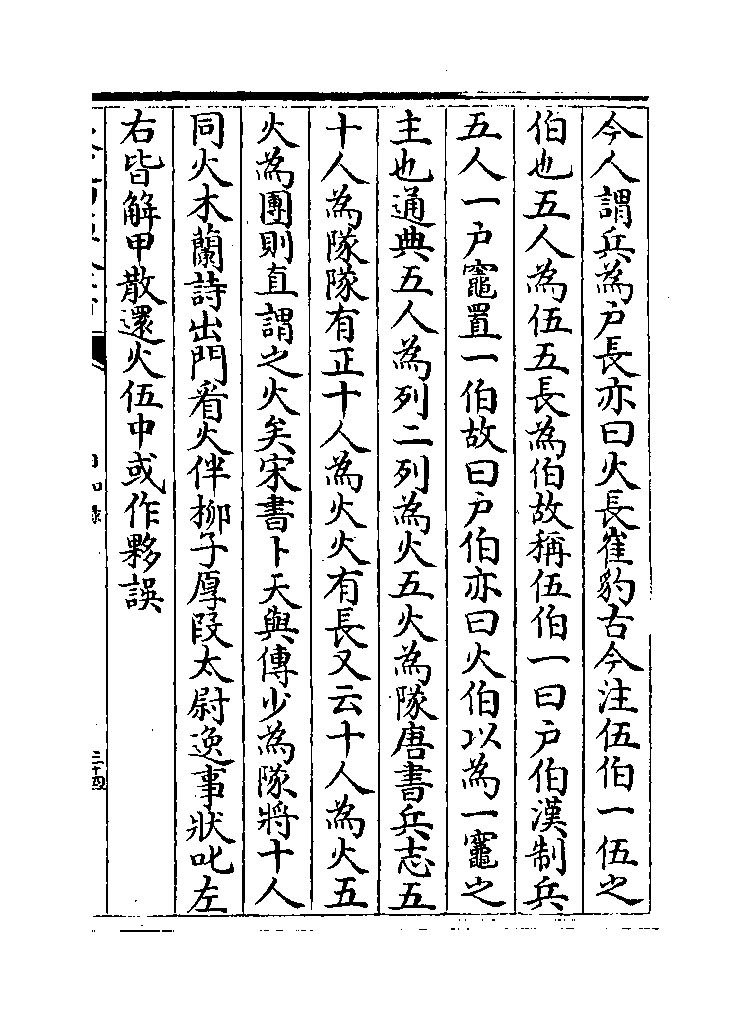 今人謂兵為户長亦曰火長崔豹古今注伍伯一伍之
伯也五人為伍五長為伯故稱伍伯一曰户伯漢制兵
五人一户竈置一伯故曰户伯亦曰火伯以為一竈之
主也通典五人為列二列為火五火為隊唐書兵志五
十人為隊隊有正十人為火火有長又云十人為火五
火為團則直謂之火矣宋書卜天與傳少為隊將十人
同火木蘭詩出門看火伴柳子厚段太尉逸事狀叱左
右皆解甲散還火伍中或作夥誤
日知錄
二十四